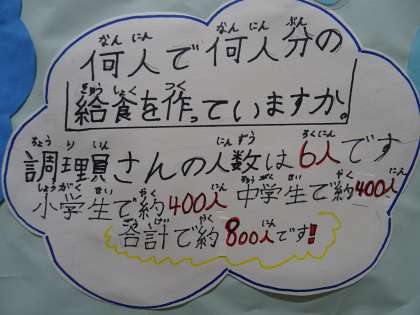 何人で何人分の
給食を作っていますか。
調理員さんの人数は6人です
小学生で約400人 中学生で約400人
合計で約800人です!